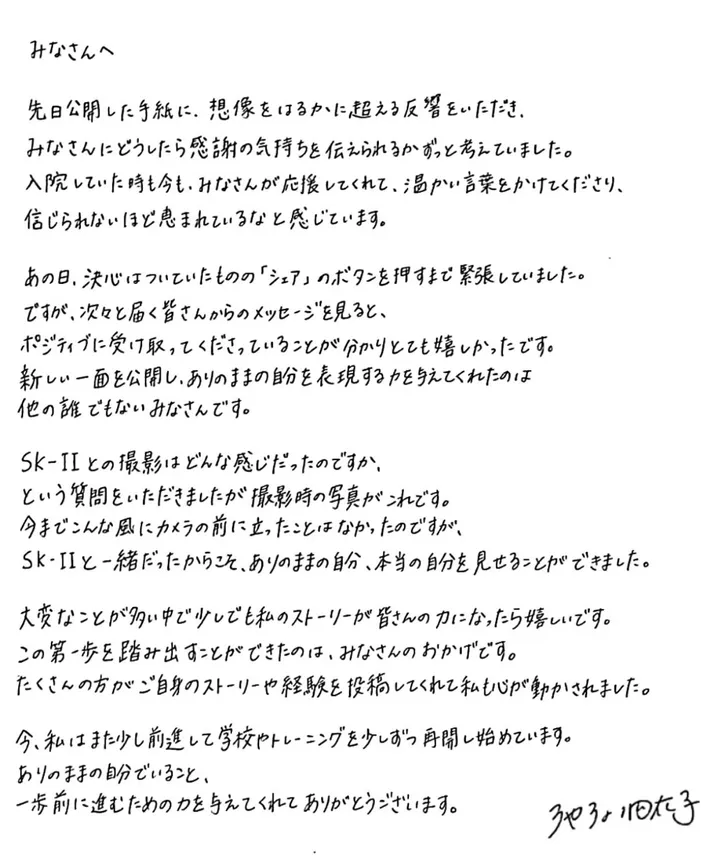 みなさんへ
先日公開した手紙に、想像をはるかに超える反響をいただき、
みなさんにどうしたら感謝の気持ちを伝えられるかずっと考えていました。
入院していた時も今も、みなさんが応援してくれて、温かい言葉をかけてくださり、
信じられないほど恵まれているなと感じています。
あの日、決心はついていたものの「シェア」のボタンを押すまで緊張していました。
ですが、次々と届く皆さんからのメッセージを見ると、
ポジティブに受け取ってくださっていることが分かりとても嬉しかったです。
新しい一面を公開し、ありのままの自分を表現する力を与えてくれたのは
他の誰でもないみなさんです。
SK-IIとの撮影はどんな感じだったのですか、
という質問をいただきましたが撮影時の写真がこれです。
今までこんな風にカメラの前に立ったことはなかったのですが、
SK-IIと一緒だったからこそ、ありのままの自分、本当の自分を見せることができました。
大変なことが多い中で少しでも私のストーリーが皆さんの力になったら嬉しいです。
この第一歩を踏み出すことができたのは、みなさんのおかげです。
たくさんの方がご自身のストーリーや経験を投稿してくれて私も心が動かされました。
今、私はまた少し前進して学校やトレーニングを少しずつ再開し始めています。
ありのままの自分でいること、
一歩前に進むための力を与えてくれてありがとうございます。